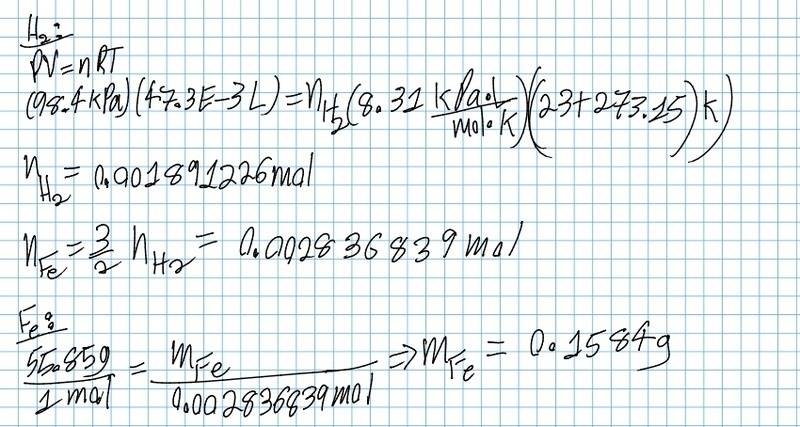 H₂:
PV=nRT
(98.4kPa)(47.3E-3L)=n_H₂(8.31 kPa·L/mol·K)(23+273.15)k)
n_H₂ = 0.001891226mol
n_Fe = 3/2 n_H₂ = 0.002836839 mol
Fe:
55.85g/1 mol = m_Fe/0.002836839mol ⇒ m_Fe = 0.1584g